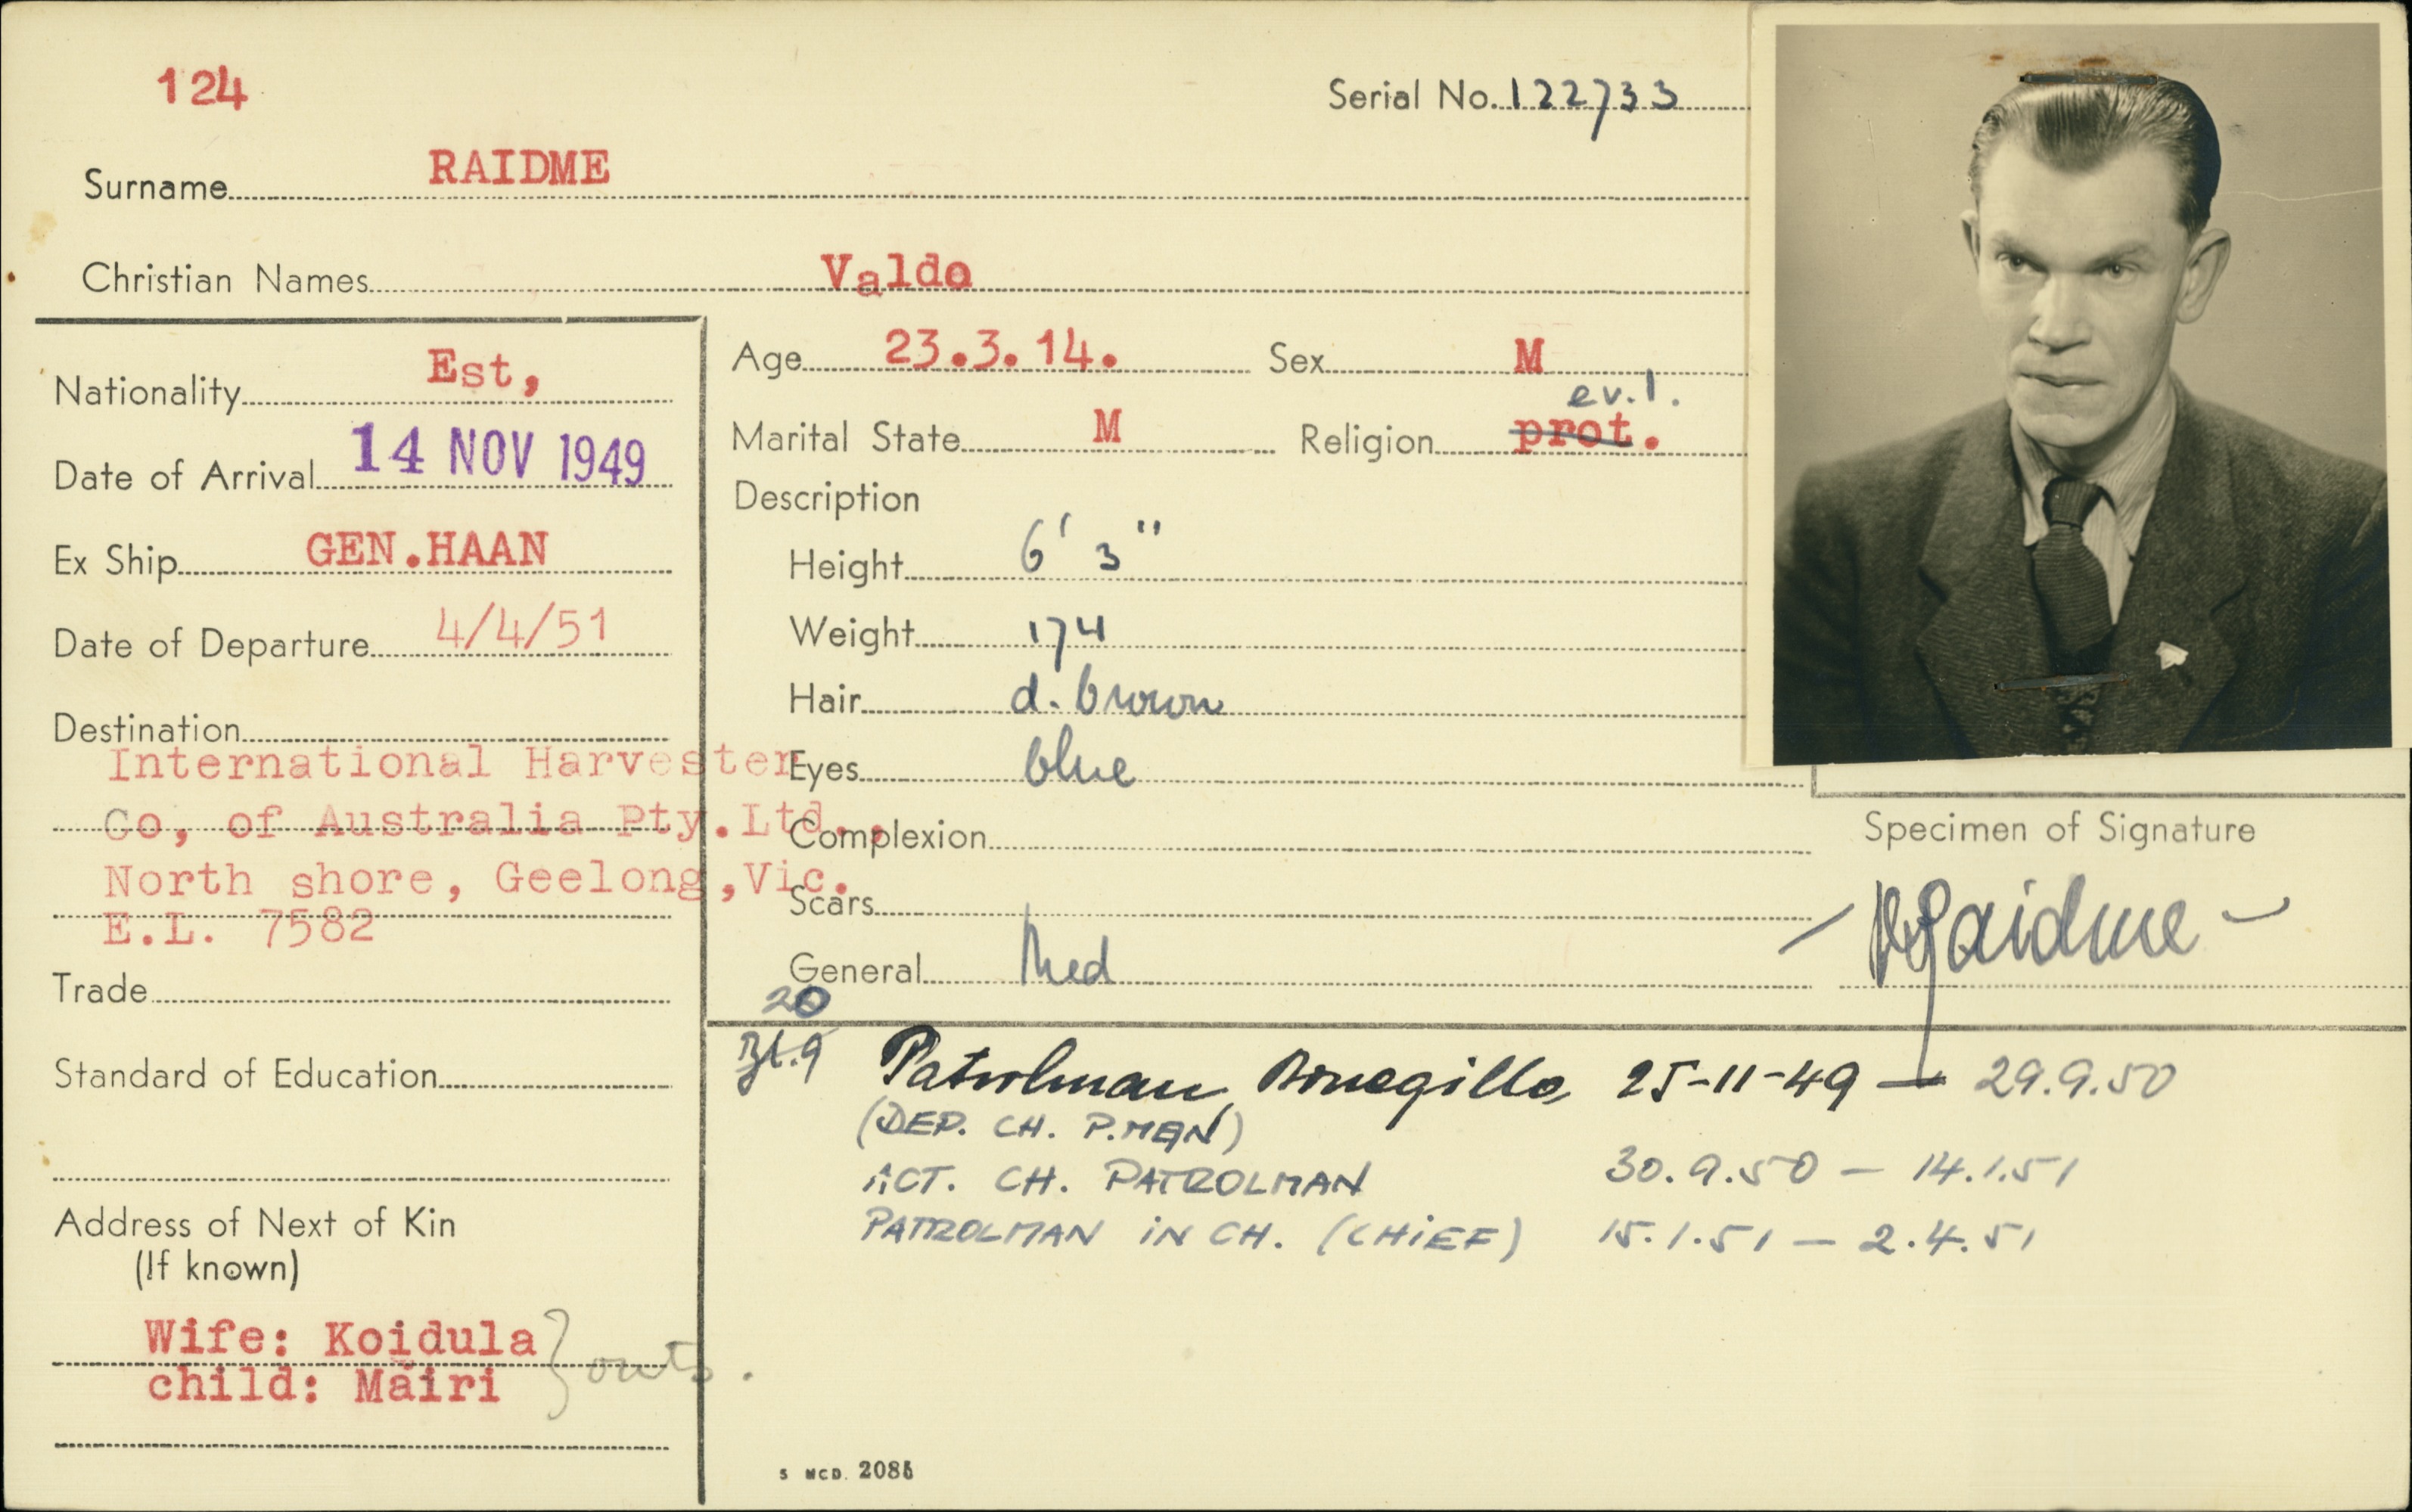 124
Serial No. 122733
Surname RAIDME
Christian Names Valdo
Nationality Est,
Date of Arrival 14 NOV 1949
Ex Ship GEN.HAAN
Date of Departure 4/4/51
Destination
International Harvester
Co, of Australia Pty.Ltd.,
North shore, Geelong,Vic.
E.L. 7582
Trade
Standard of Education
Address of Next of Kin
(If known)
Wife: Koidula
child: Mairi
Age 23.3.14. Sex M
ev.l.
Marital State M Religion prot.
Description
Height 6' 3"
Weight 174
Hair d. brown
Eyes blue
Complexion
Scars
General Med
Specimen of Signature
VRaidme
20
Bl.9
Patrolman, Bonegilla, 25-11-49 — 29.9.50
(DEP. CH. P.MAN)
ACT. CH. PATROLMAN 30.9.50 — 14.1.51
PATROLMAN IN CH. (CHIEF) 15.1.51 — 2.4.51